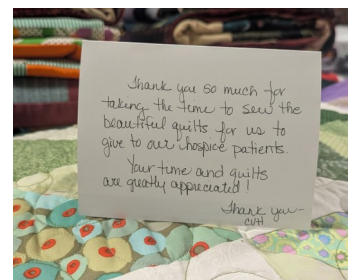 Thank you so much for
taking the time to sew the
beautiful quilts for us to
give to our hospice patients.
Your time and quilts
are greatly appreciated!
Thank you-
CVH